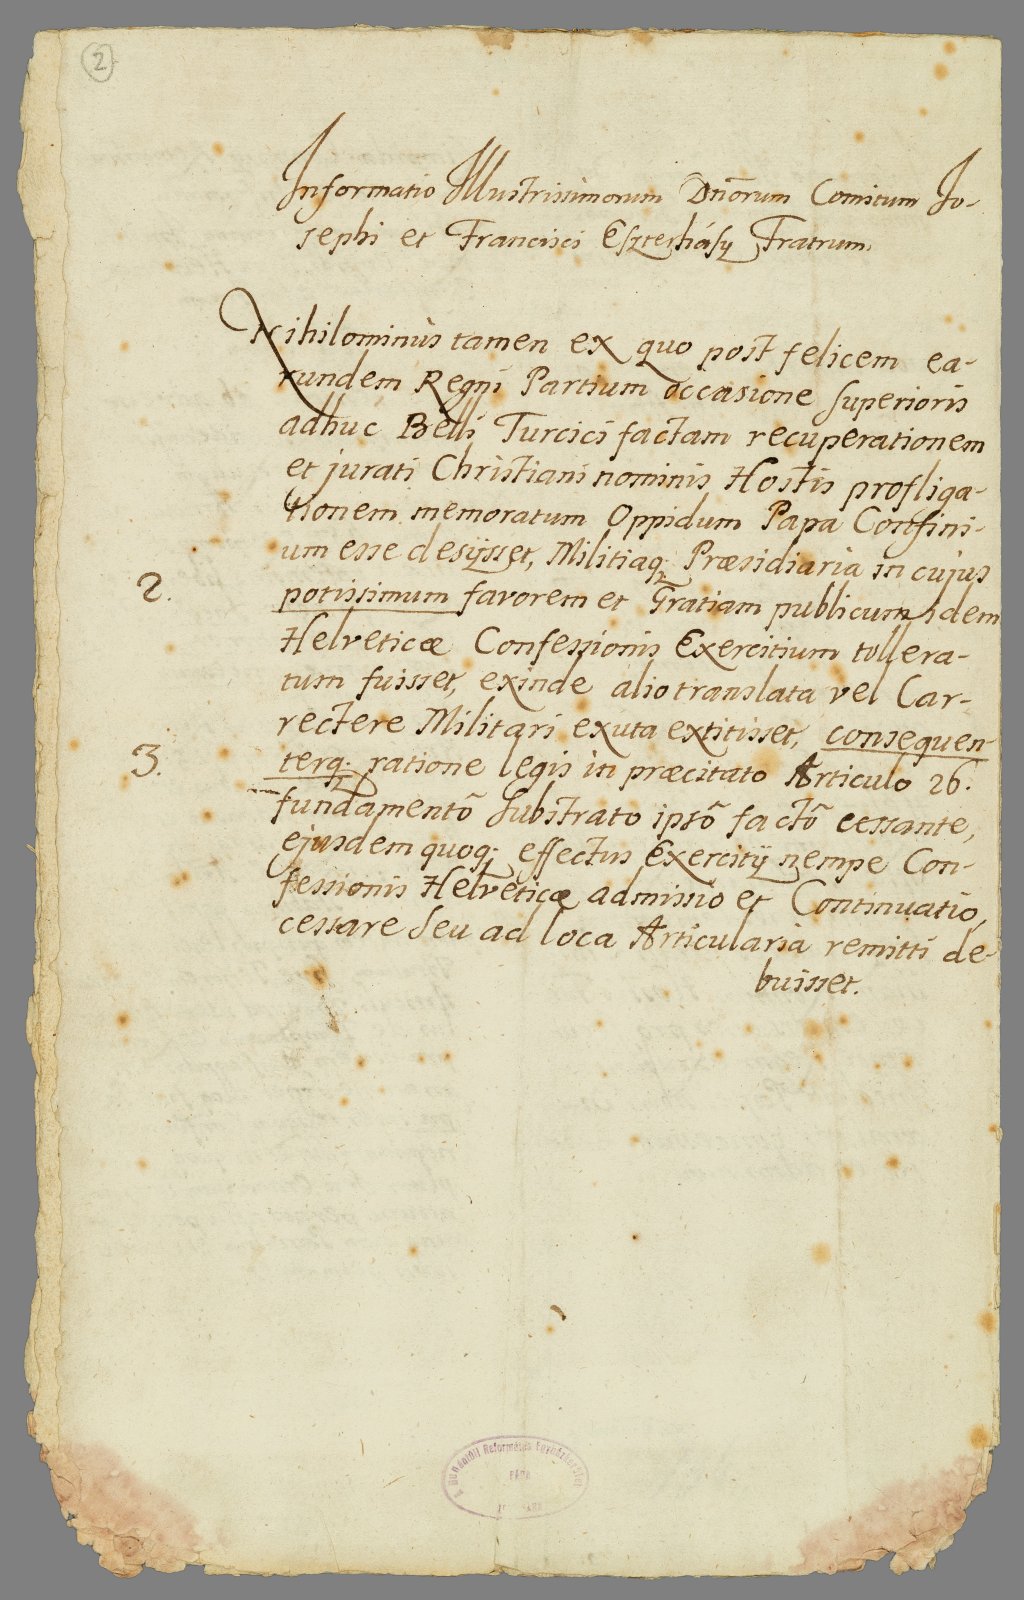 2
Informatio Illustrissimorum Dn̄orum Comitum Jo-
sephi et Francisci Eszterhásÿ Fratrum.
Nihilominùs tamen ex quo post felicem ea-
rundem Regni Partium occasione superioris
adhuc Belli Turcici factam recuperationem
et jurati Christiani nominis Hostis profliga-
tionem memoratum Oppidum Papa Confini-
um esse desijsset, Militiaq; Præsidiaria in cujus
2.
potissimum favorem et Gratiam publicum idem
Helveticæ Confessionis Exercitium tollera-
tum fuisset, exinde alio translata vel Car-
rectere Militari exuta extitisset, consequen-
3.
terq; ratione legis in præcitato Articulo 26.
fundamentō substrato ipsō factō cessante,
ejusdem quoq; effectus Exercitij nempe Con-
fessionis Helveticæ admissio et Continuatio,
cessare seu ad loca Articularia remitti de-
buisset.
A Dunántúli Református Egyházkerület
PÁPA